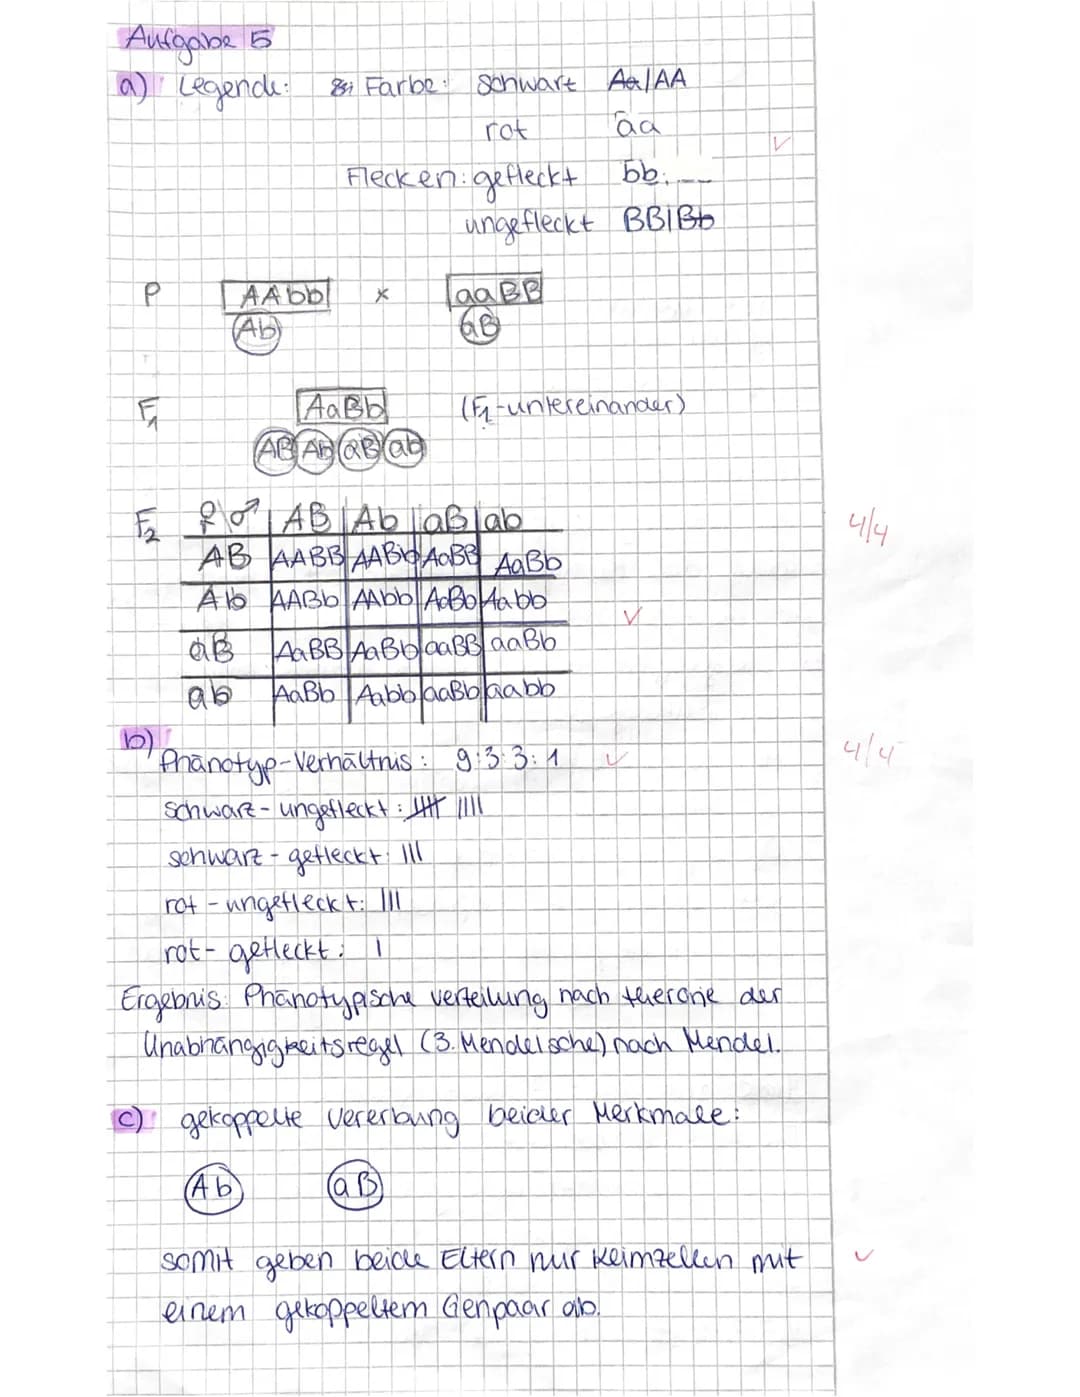 Aufgabe 5
a) Legende: Farbe: schwart Aa/AA
rot aa
Flecken: gefleckt bb
ungefleckt BB|Bb
P AAbb x aaBB
Ab aB
F1 AaBb (F1-untereinander)
AB Ab aB ab
F2 ♀\♂ AB Ab aB ab
AB AABB AABb AaBB AaBb
Ab AABb AAbb AaBb Aabb
4/4
aB AaBB AaBb aaBB aaBb
ab AaBb Aabb aaBb aabb
b) Phänotyp-Verhältnis: 9:3:3:1 4/4
schwarz - ungefleckt: |||| ||||
schwarz - gefleckt: |||
rot - ungefleckt: |||
rot - gefleckt: |
Ergebnis: Phänotypische verteilung nach der
Unabhängigkeitsregel (3. Mendelsche) nach Mendel.
c) gekoppelte Vererbung beider Merkmale:
Ab aB
somit geben beide Eltern nur Keimzellen mit
einem gekoppeltem Genpaar ab.